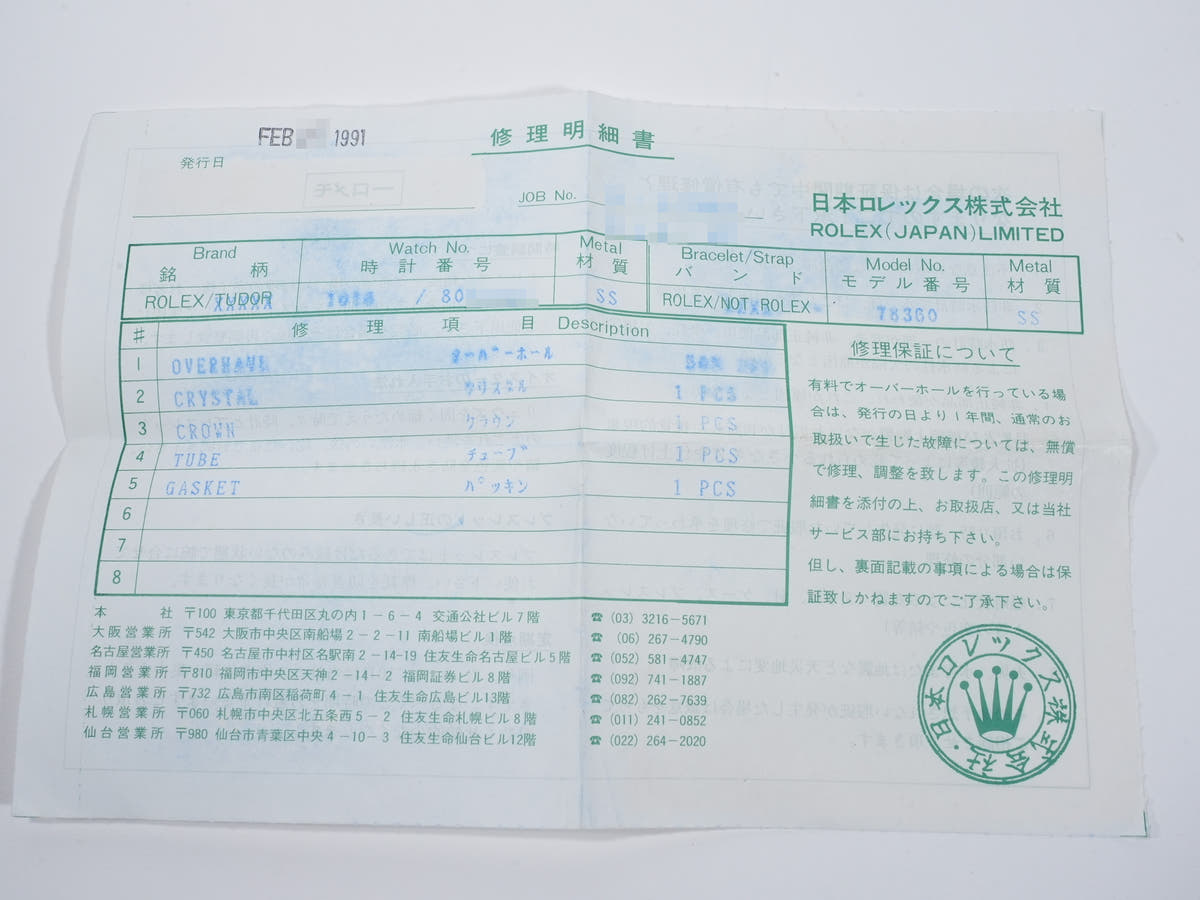 FEB 1991
修理明細書
発行日
JOB No.
日本ロレックス株式会社
ROLEX(JAPAN)LIMITED
Brand Watch No. Metal Bracelet/Strap Model No. Metal
銘柄 時計番号 材質 バンド モデル番号 材質
ROLEX/TUDOR / 80 SS ROLEX/NOT ROLEX 78360 SS
# 修理項目 Description
1 OVERHAUL オーバーホール
2 CRYSTAL クリスタル 1 PCS
3 CROWN クラウン 1 PCS
4 TUBE チューブ 1 PCS
5 GASKET パッキン 1 PCS
6
7
8
修理保証について
有料でオーバーホールを行っている場
合は、発行の日より1年間、通常のお
取扱いで生じた故障については、無償
で修理、調整を致します。この修理明
細書を添付の上、お取扱店、又は当社
サービス部にお持ち下さい。
但し、裏面記載の事項による場合は保
証致しかねますのでご了承下さい。
本社 〒100 東京都千代田区丸の内1-6-4 交通公社ビル7階 ☎(03)3216-5671
大阪営業所 〒542 大阪市中央区南船場2-2-11 南船場ビル1階 ☎(06)267-4790
名古屋営業所 〒450 名古屋市中村区名駅南2-14-19 住友生命名古屋ビル5階 ☎(052)581-4747
福岡営業所 〒810 福岡市中央区天神2-14-2 福岡証券ビル8階 ☎(092)741-1887
広島営業所 〒732 広島市南区稲荷町4-1 住友生命広島ビル13階 ☎(082)262-7639
札幌営業所 〒060 札幌市中央区北五条西5-2 住友生命札幌ビル8階 ☎(011)241-0852
仙台営業所 〒980 仙台市青葉区中央4-10-3 住友生命仙台ビル12階 ☎(022)264-2020
日本ロレックス株式会社